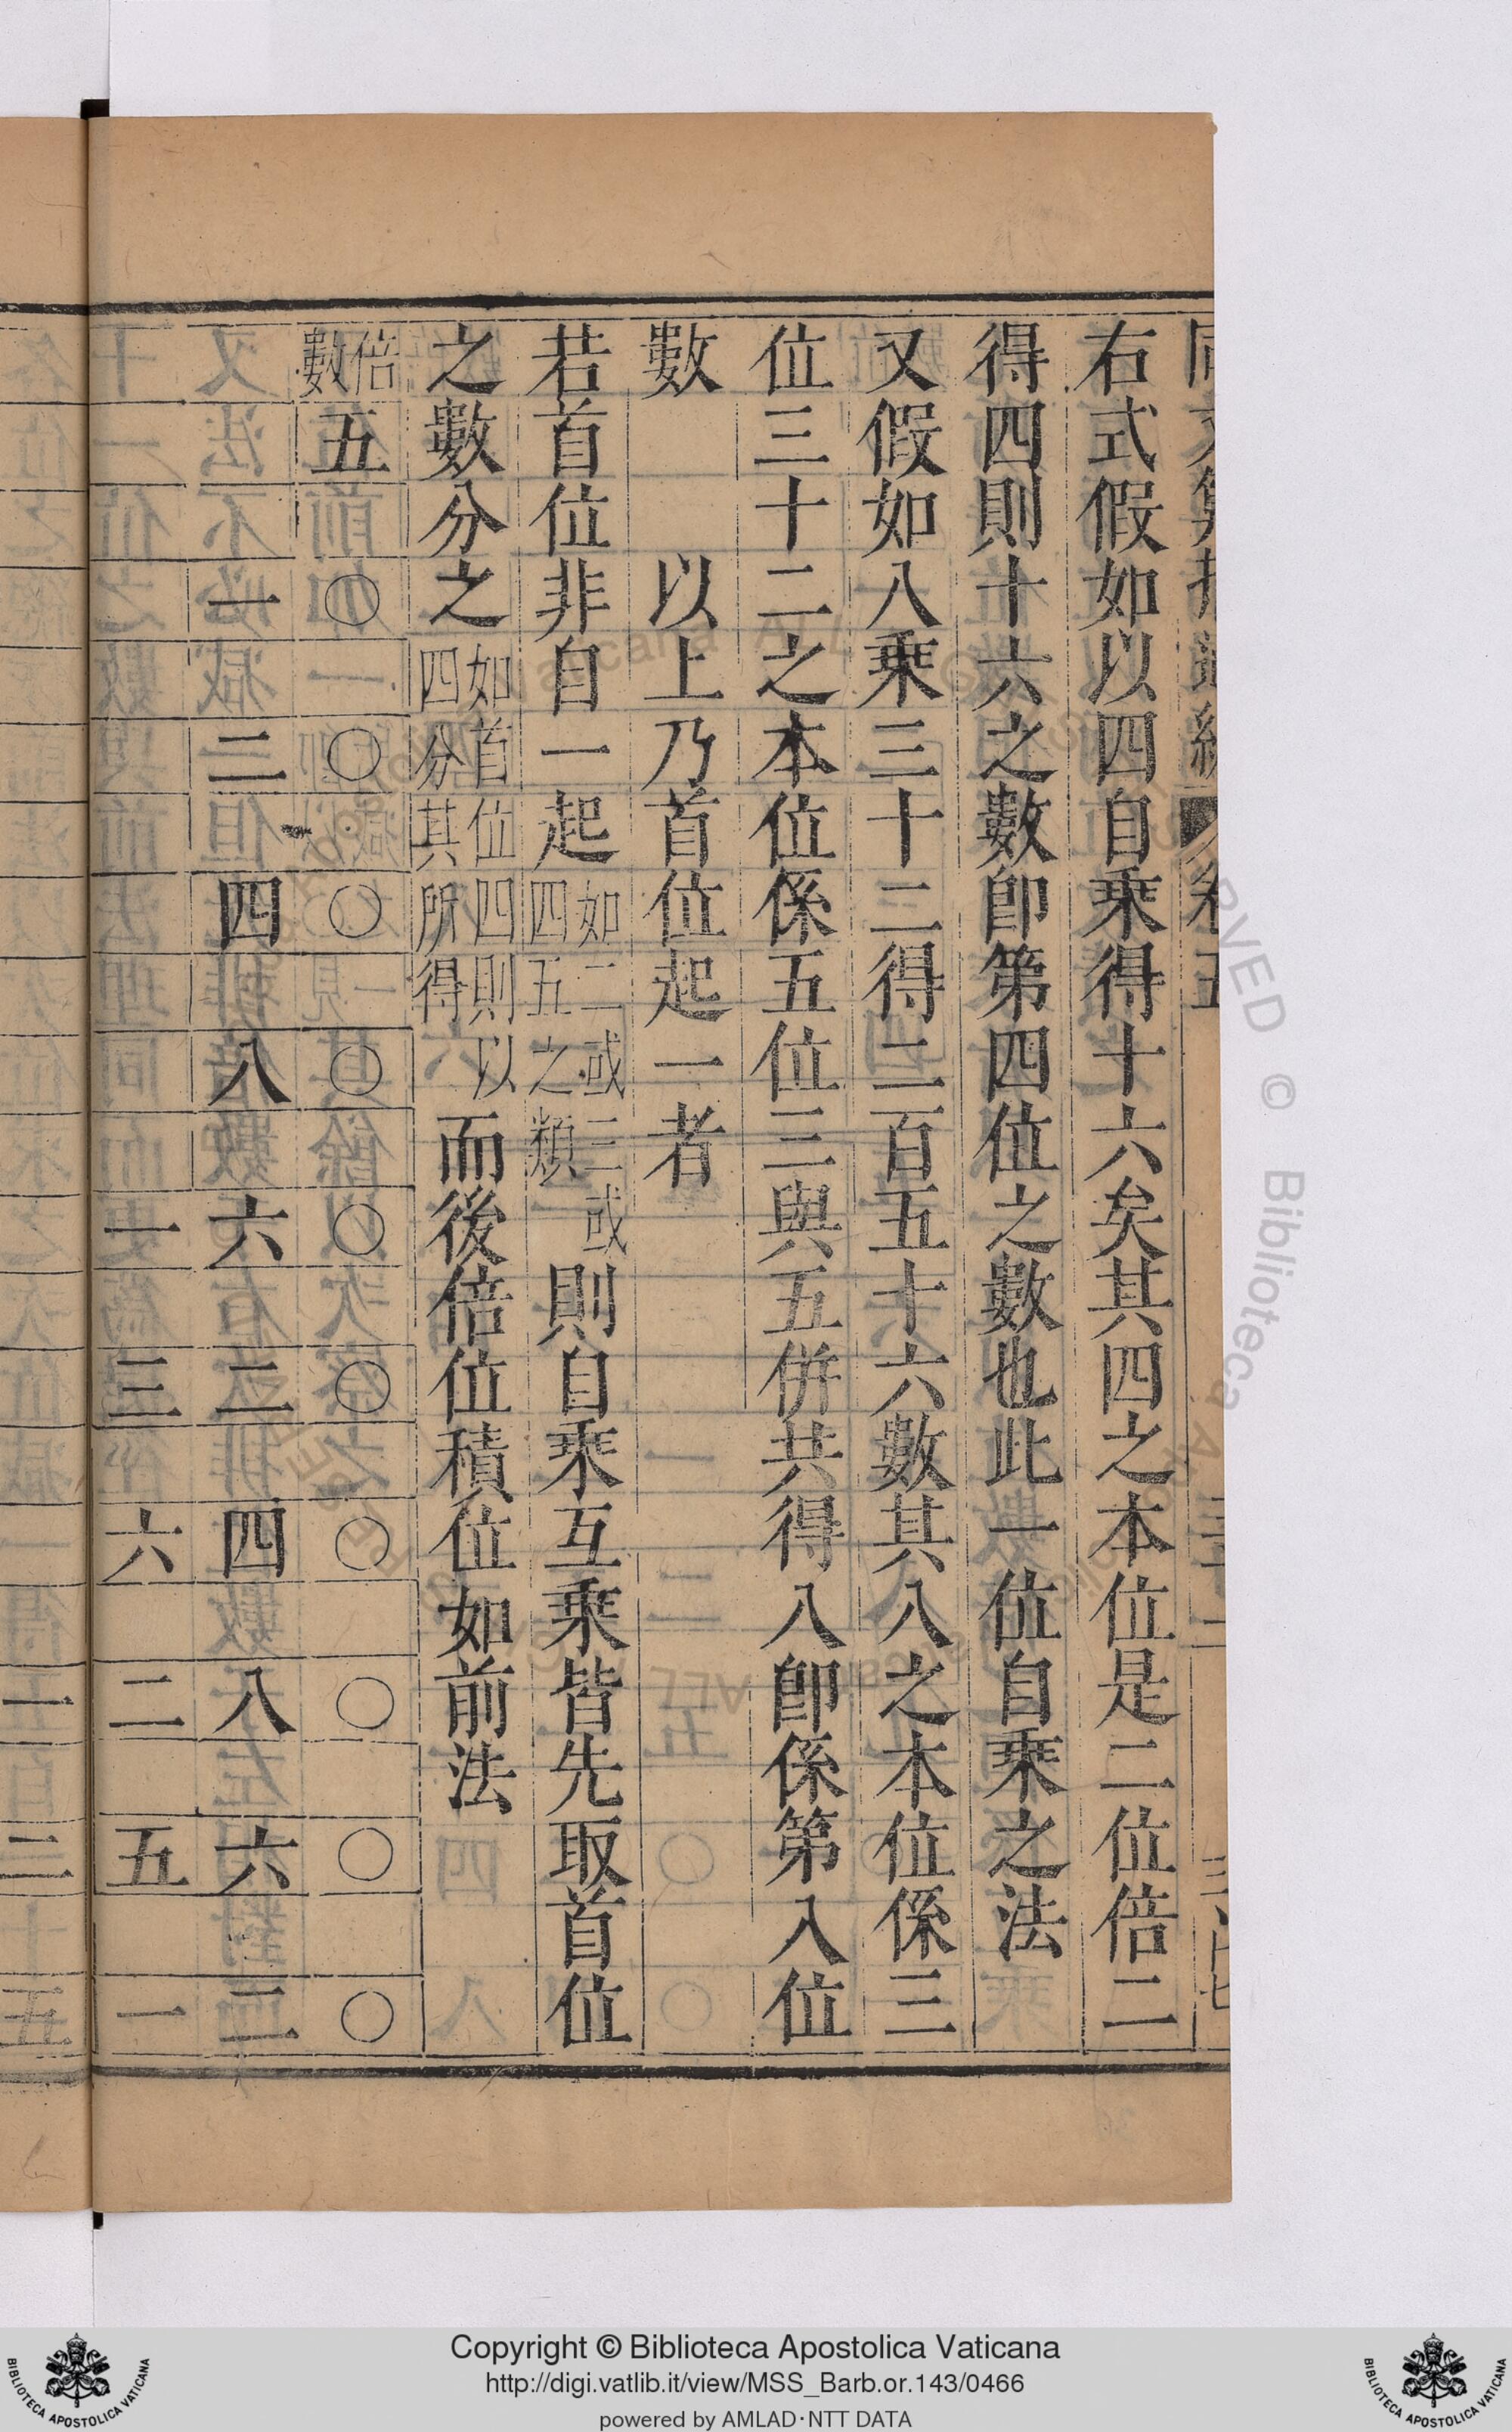 右式假如以四自乘得十六矣其四之本位是二位倍二
得四則十六之數即第四位之數也此一位自乘之法
又假如八乘三十二得二百五十六數其八之本位係三
位三十二之本位係五位三與五併共得八即係第入位
數
以上乃首位起一者
若首位非自一起如二或三或四五之類則自乘互乘皆先取首位
之數分之如首位四則以四分其所得而後倍位積位如前法
倍數五〇〇〇〇〇〇〇〇〇〇
一二四八六二四八六二
一三六二五一
Copyright © Biblioteca Apostolica Vaticana
http://digi.vatlib.it/view/MSS_Barb.or.143/0466
powered by AMLAD·NTT DATA
BIBLIOTECA APOSTOLICA VATICANA
BIBLIOTECA APOSTOLICA VATICANA